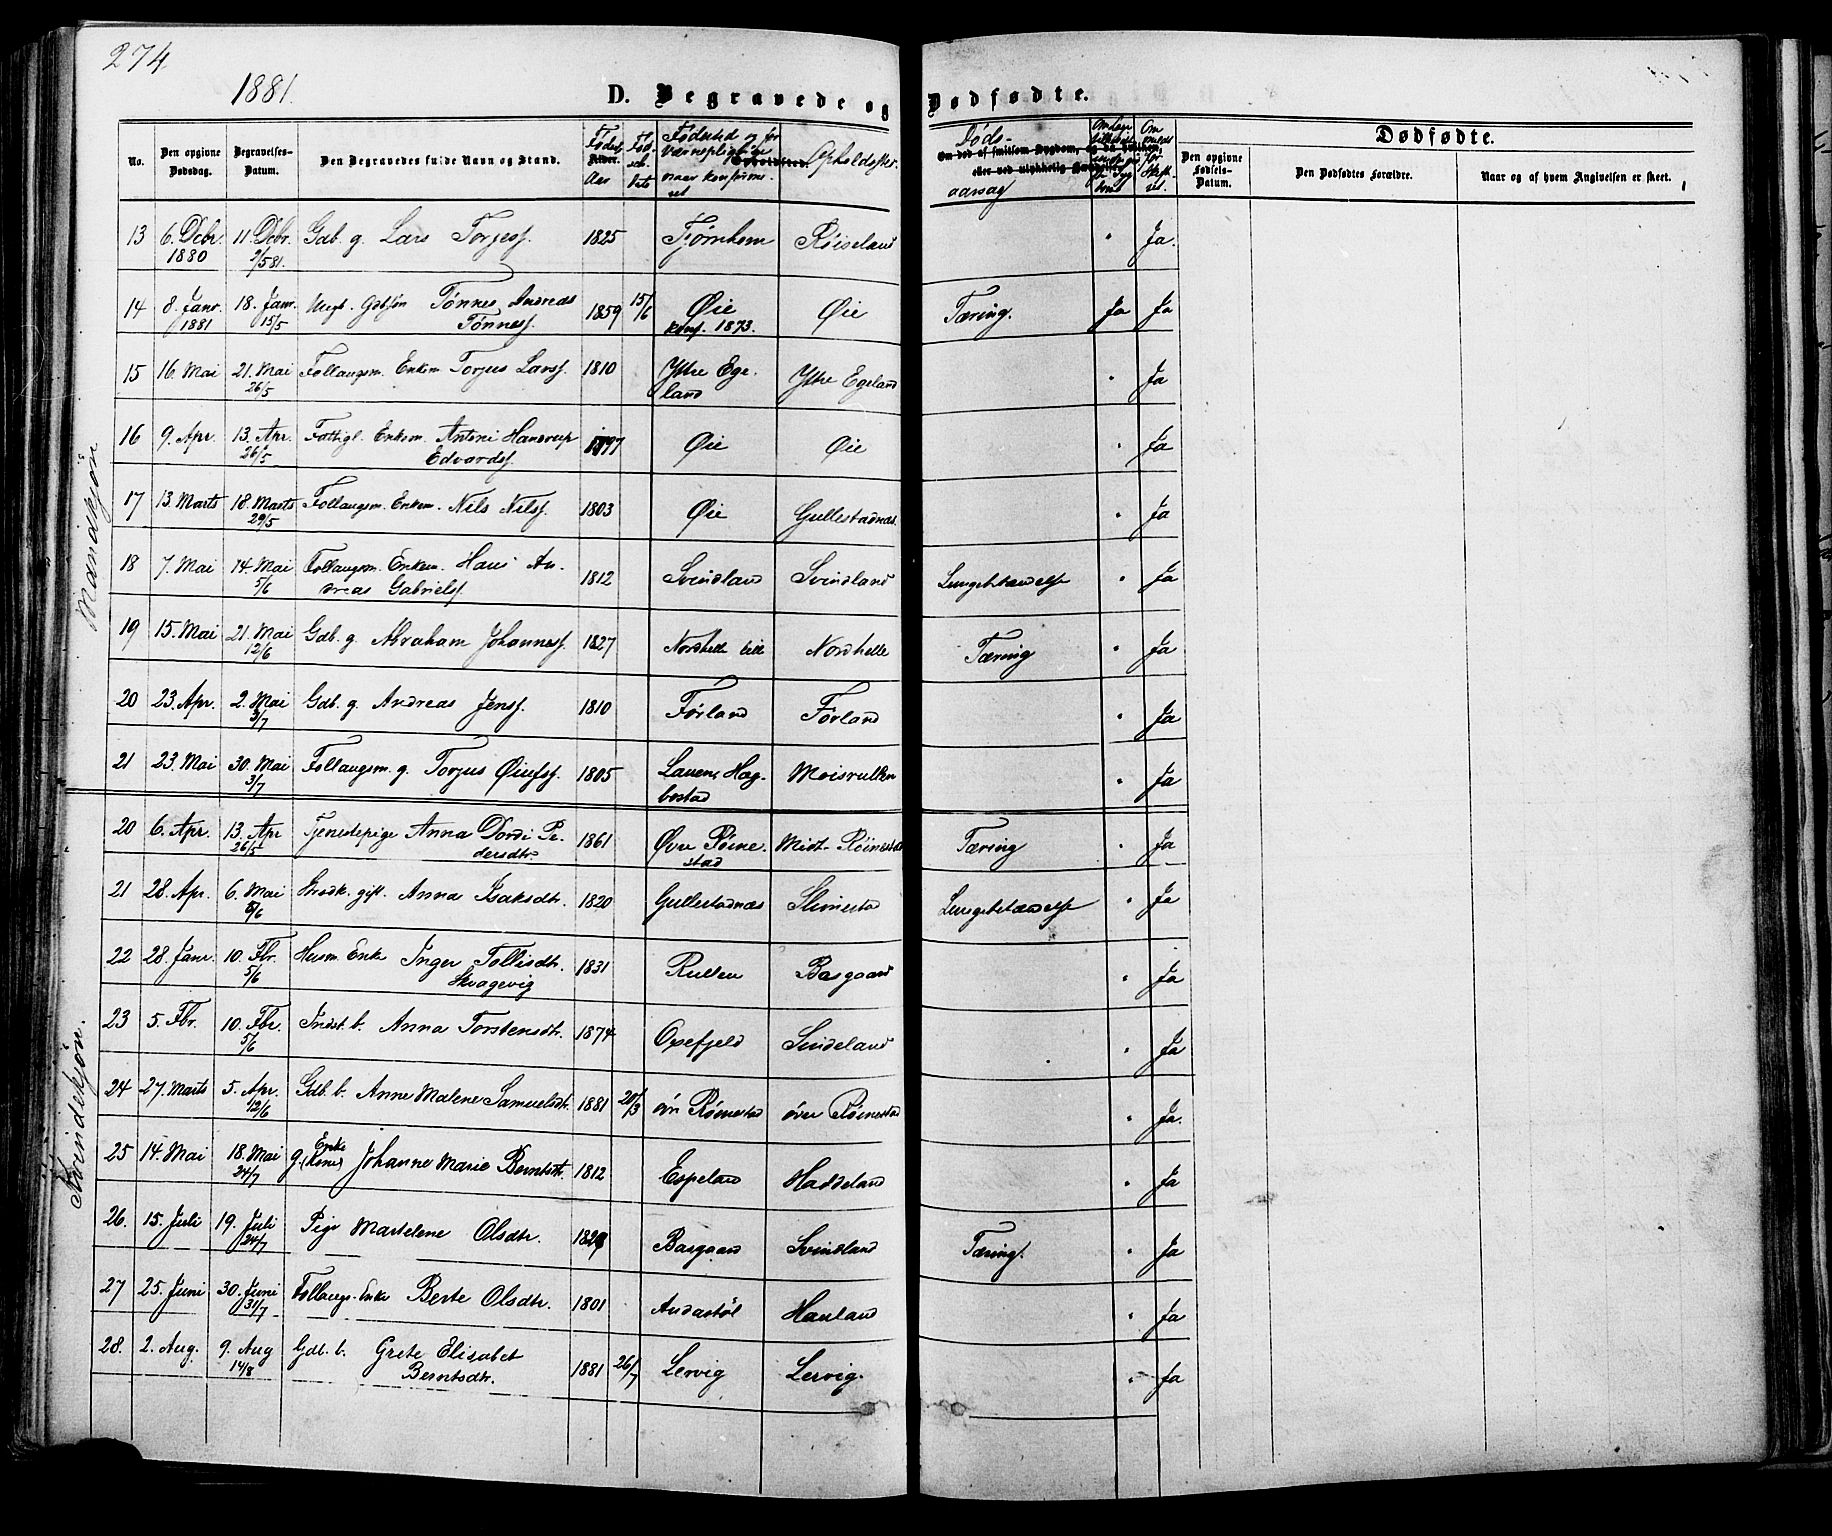 274
1881.
D. Begravede og Dødfødte.
No. Den opgivne Dødsdag. Begravelses-Datum. Den Begravedes fulde Navn og Stand. Føds. Alder. Aar Fødested og for Værnepligtige naar konfirmeret Opholdssted. Opholdsster. Døds-aarsag Om død af smitsom Sygdom, og da hvilken, eller ved ulykkelig Om
Dødfødte.
Den opgivne Fødsels-Datum. Den Dødfødtes Forældre. Naar og af hvem Angivelsen er skeet.
Mandkjøn
13 6. Dcbr. 1880 11. Dcbr. 9/5 81. Gdb. g. Lars Torjess. 1825 Fjørnhom Røiseland " Ja.
14 8. Janr. 1881 18. Janr. 15/5 Ungk. Gdbsøn Tønnes Andreas Tønness. 1859 15/6 Øie konf. 1873. Øie Tæring. Ja Ja
15 16. Mai 21. Mai 26/5 Follaugsm. Enkem Torjus Larss. 1810 Ystre Egeland Ystre Egeland " Ja
16 9. Apr. 13. Apr. 26/5 Fattigl. Enkem. Antoni Hanstrup Edvards. 1797 Øie Øie " Ja
17 13. Marts 18. Marts 29/5 Follaugsm. Enkem. Nils Nilss. 1803 Øie Gullestadnæs. " Ja
18 7. Mai 14. Mai 5/6 Follaugsm. Enkem. Hans Andreas Gabriels. 1812 Svindland Svindland Lungebetændelse " Ja
19 15. Mai 21. Mai 12/6 Gdb. g. Abraham Johanness. 1827 Nordhelle lille Nordhelle Tæring " Ja
20 23. Apr. 2. Mai 3/7 Gdb. g. Andreas Jenss. 1810 Førland Førland " Ja
21 23. Mai 30. Mai 3/7 Follaugsm. g. Torjus Øiufss. 1805 Lauen, Hægbostad Moisrullen " Ja
Kvindekjøn.
20 6. Apr. 13. Apr 26/5 Tjenestepige Anna Dordi Pedersdtr. 1861 Øvre Røinestad Midt-Røinestad Tæring " Ja
21 28. Apr. 6. Mai 5/6 gift. Anna Isaksdtr. 1820 Gullestadnæs Slimestad Lungebetændelse " Ja
22 28. Janr. 10. Fbr. 5/6 Husm. Enke Inger Tollisdtr. Skvagevig 1831 Rullen Basgaard " Ja
23 5. Fbr. 10. Fbr. 5/6 Indst. b. Anna Torstensdtr. 1874 Oxefjeld Sindeland " Ja
24 27. Marts 5. Apr. 12/6 Gdb. b. Anne Malene Samuelsdtr. 1881 20/3 øvr Røinestad øver Røinestad " Ja.
25 14. Mai 18. Mai 24/7 g. Enke (Kone) Johanne Marie Berntsdtr. 1812 Espeland Haddeland " Ja
26. 15. Juli 19. Juli 24/7 Pige Martelene Olsdtr. 1829 Basgaard Svindland Tæring. " Ja
27 25. Juni 30. Juni 31/7 Follaugs. Enke Berte Olsdtr. 1801 Andastøl Hanland " Ja
28. 2. Aug. 9. Aug 14/8 Gdb. b. Grete Elisabet Berntsdtr. 1881 26/7 Lervig Lervig. " Ja